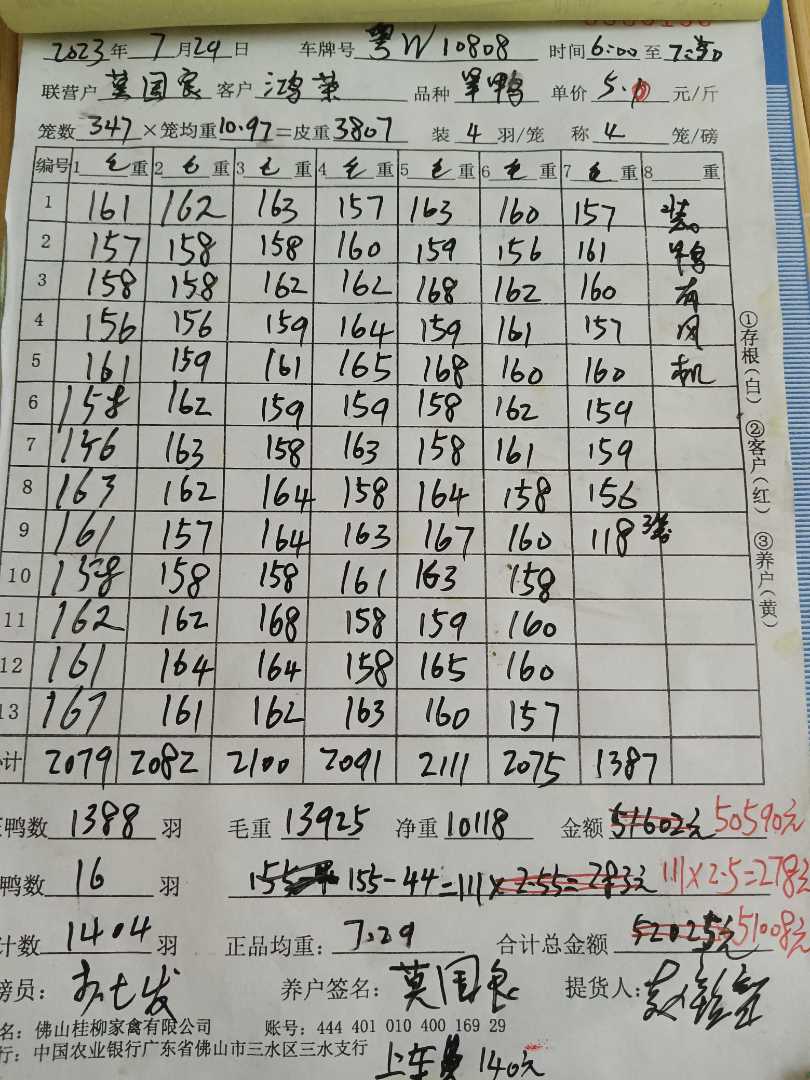 2023年 7月29日 车牌号 粤W10808 时间6:00至7:30
联营户 莫国良 客户 鸿荣 品种 旱鸭 单价 5.0 元/斤
笼数 347 ×笼均重10.97=皮重3807 装 4 羽/笼 称 4 笼/磅
编号 1 毛 重 2 毛 重 3 毛 重 4 毛 重 5 毛 重 6 毛 重 7 毛 重 8 重
1 161 162 163 157 163 160 157 装
2 157 158 158 160 159 156 161 鸭
3 158 158 162 162 168 162 160 有
4 156 156 159 164 159 161 157 风
5 161 159 161 165 168 160 160 机
6 158 162 159 159 158 162 159
7 156 163 158 163 158 161 159
8 163 162 164 158 164 158 156
9 161 157 164 163 167 160 118 3笼
10 158 158 158 161 163 158
11 162 162 168 158 159 160
12 161 164 164 158 165 160
13 167 161 162 163 160 157
计 2079 2082 2100 2091 2111 2075 1387
鸭数 1388 羽 毛重 13925 净重 10118 金额 51602元 50590元
鸭数 16 羽 155-44=111×2.55=283元 111×2.5=278元
计数 1404 羽 正品均重: 7.29 合计总金额 51008元
磅员: 养户签名: 莫国良 提货人:
名: 佛山桂柳家禽有限公司 账号: 444 401 010 400 169 29
行: 中国农业银行广东省佛山市三水区三水支行
上车费 140元
①存根(白) ②客户(红) ③养户(黄)